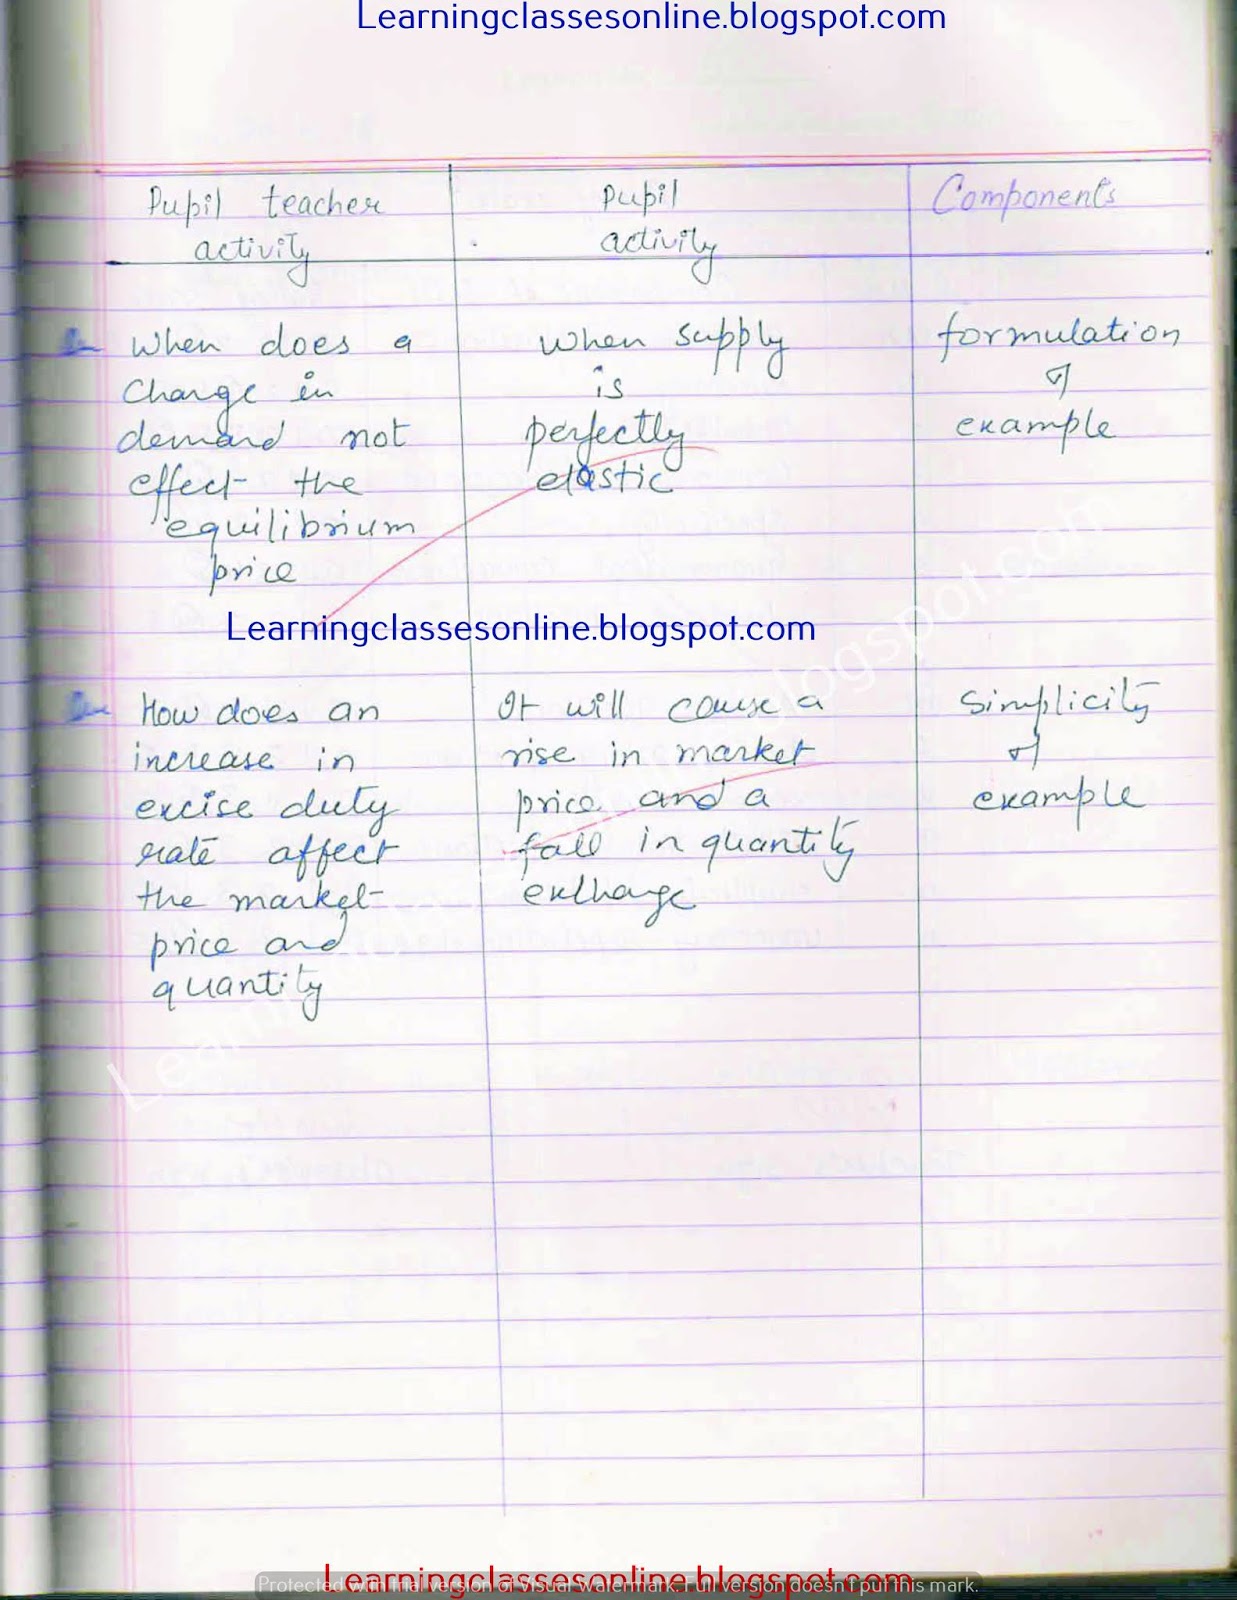 Learningclassesonline.blogspot.com
Pupil teacher activity
Pupil activity
Components
When does a
Change in
demand not
effect the
equilibrium
price
When supply
is
perfectly
elastic
formulation
of
example
Learningclassesonline.blogspot.com
How does an
increase in
excise duty
rate affect
the market
price and
quantity
It will cause a
rise in market
price and a
fall in quantity
exchange
Simplicity
of
example
Learningclassesonline.blogspot.com
Protected with trial version of Visual Watermark. Full version doesn't put this mark.